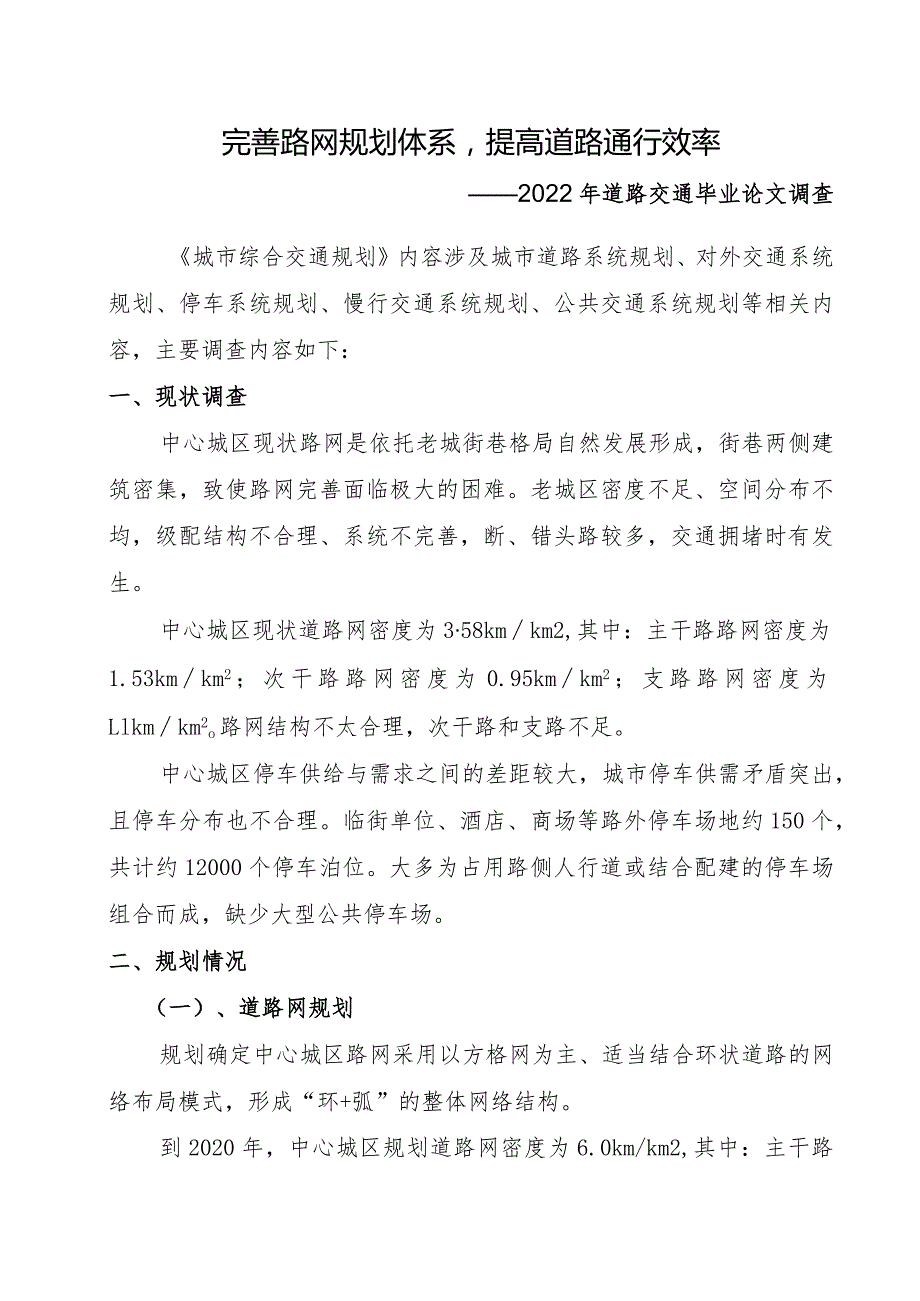 完善路网规划体系，提高道路通行效率
——2022年道路交通毕业论文调查
《城市综合交通规划》内容涉及城市道路系统规划、对外交通系统
规划、停车系统规划、慢行交通系统规划、公共交通系统规划等相关内
容，主要调查内容如下：
一、现状调查
中心城区现状路网是依托老城街巷格局自然发展形成，街巷两侧建
筑密集，致使路网完善面临极大的困难。老城区密度不足、空间分布不
均，级配结构不合理、系统不完善，断、错头路较多，交通拥堵时有发
生。
中心城区现状道路网密度为3·58km／km2,其中：主干路路网密度为
1.53km／km²；次干路路网密度为0.95km／km²；支路路网密度为
Llkm／km²o路网结构不太合理，次干路和支路不足。
中心城区停车供给与需求之间的差距较大，城市停车供需矛盾突出，
且停车分布也不合理。临街单位、酒店、商场等路外停车场地约150个，
共计约12000个停车泊位。大多为占用路侧人行道或结合配建的停车场
组合而成，缺少大型公共停车场。
二、规划情况
（一）、道路网规划
规划确定中心城区路网采用以方格网为主、适当结合环状道路的网
络布局模式，形成“环+弧”的整体网络结构。
到2020年，中心城区规划道路网密度为6.0km/km2,其中：主干路